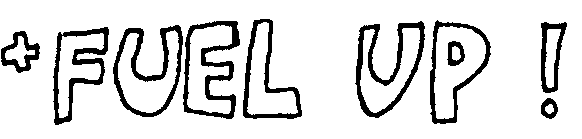 +FUEL UP !